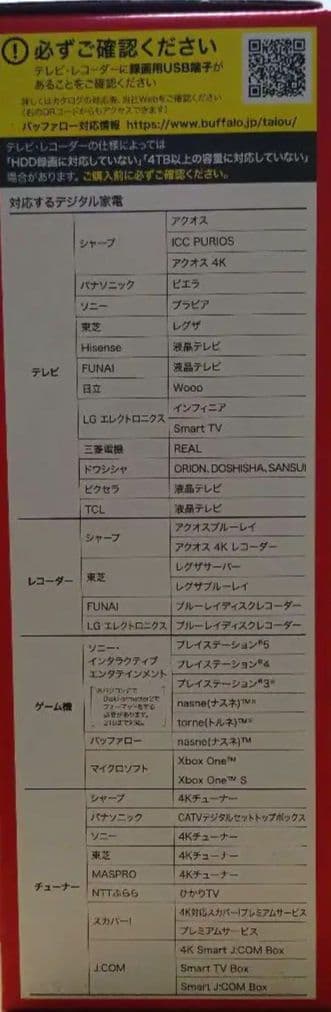 ! 必ずご確認ください
テレビ・レコーダーに録画用USB端子が
あることをご確認ください
詳しくはカタログの対応表、当社Webをご確認ください
(右のQRコードからもアクセスできます)
バッファロー対応情報 https://www.buffalo.jp/taiou/
テレビ・レコーダーの仕様によっては
「HDD録画に対応していない」「4TB以上の容量に対応していない」
場合があります。ご購入前に必ずご確認ください。
対応するデジタル家電
テレビ
シャープ
アクオス
ICC PURIOS
アクオス 4K
パナソニック ビエラ
ソニー ブラビア
東芝 レグザ
Hisense 液晶テレビ
FUNAI 液晶テレビ
日立 Wooo
LG エレクトロニクス
インフィニア
Smart TV
三菱電機 REAL
ドウシシャ ORION, DOSHISHA, SANSUI
ピクセラ 液晶テレビ
TCL 液晶テレビ
レコーダー
シャープ
アクオスブルーレイ
アクオス 4K レコーダー
東芝
レグザサーバー
レグザブルーレイ
FUNAI ブルーレイディスクレコーダー
LG エレクトロニクス ブルーレイディスクレコーダー
ゲーム機
ソニー・
インタラクティブ
エンタテインメント
プレイステーション®5
プレイステーション®4
プレイステーション®3※
nasne(ナスネ)™※
torne(トルネ)™※
バッファロー nasne(ナスネ)™
マイクロソフト
Xbox One™
Xbox One™ S
チューナー
シャープ 4Kチューナー
パナソニック CATVデジタルセットトップボックス
ソニー 4Kチューナー
東芝 4Kチューナー
MASPRO 4Kチューナー
NTTぷらら ひかりTV
スカパー!
4K対応スカパー!プレミアムサービス
プレミアムサービス
J:COM
4K Smart J:COM Box
Smart TV Box
Smart J:COM Box